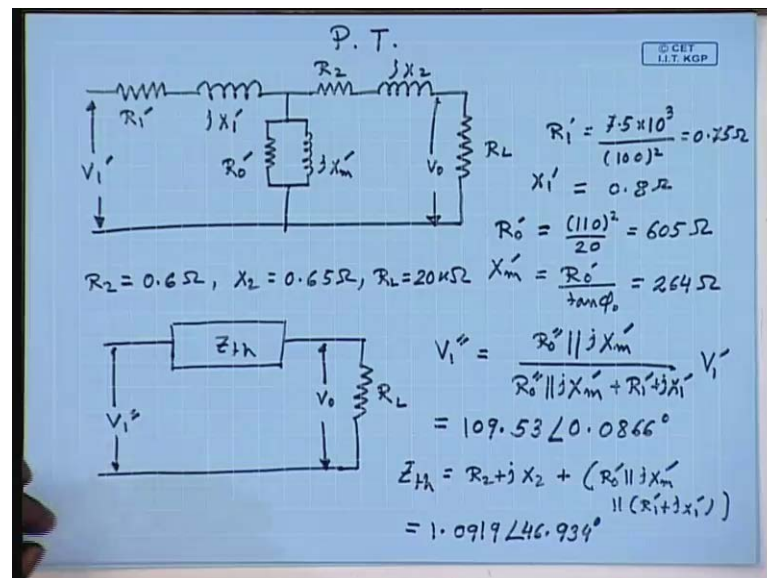 P. T.
© CET
I.I.T. KGP
R₂ jX₂
R₁′ jX₁′
V₁′ R₀′ jXₘ′ V₀ R_L
R₁′ = 7.5×10³ / (100)² = 0.75Ω
X₁′ = 0.8Ω
R₀′ = (110)² / 20 = 605Ω
R₂ = 0.6Ω, X₂ = 0.65Ω, R_L = 20KΩ
Xₘ′ = R₀′ / tanφ₀ = 264Ω
Z_th
V₁″ V₀ R_L
V₁″ = R₀″||jXₘ′ / R₀″||jXₘ′ + R₁′ + jX₁′ V₁′
= 109.53∠0.0866°
Z_th = R₂ + jX₂ + (R₀′||jXₘ′
||(R₁′+jX₁′))
= 1.0919∠46.934°